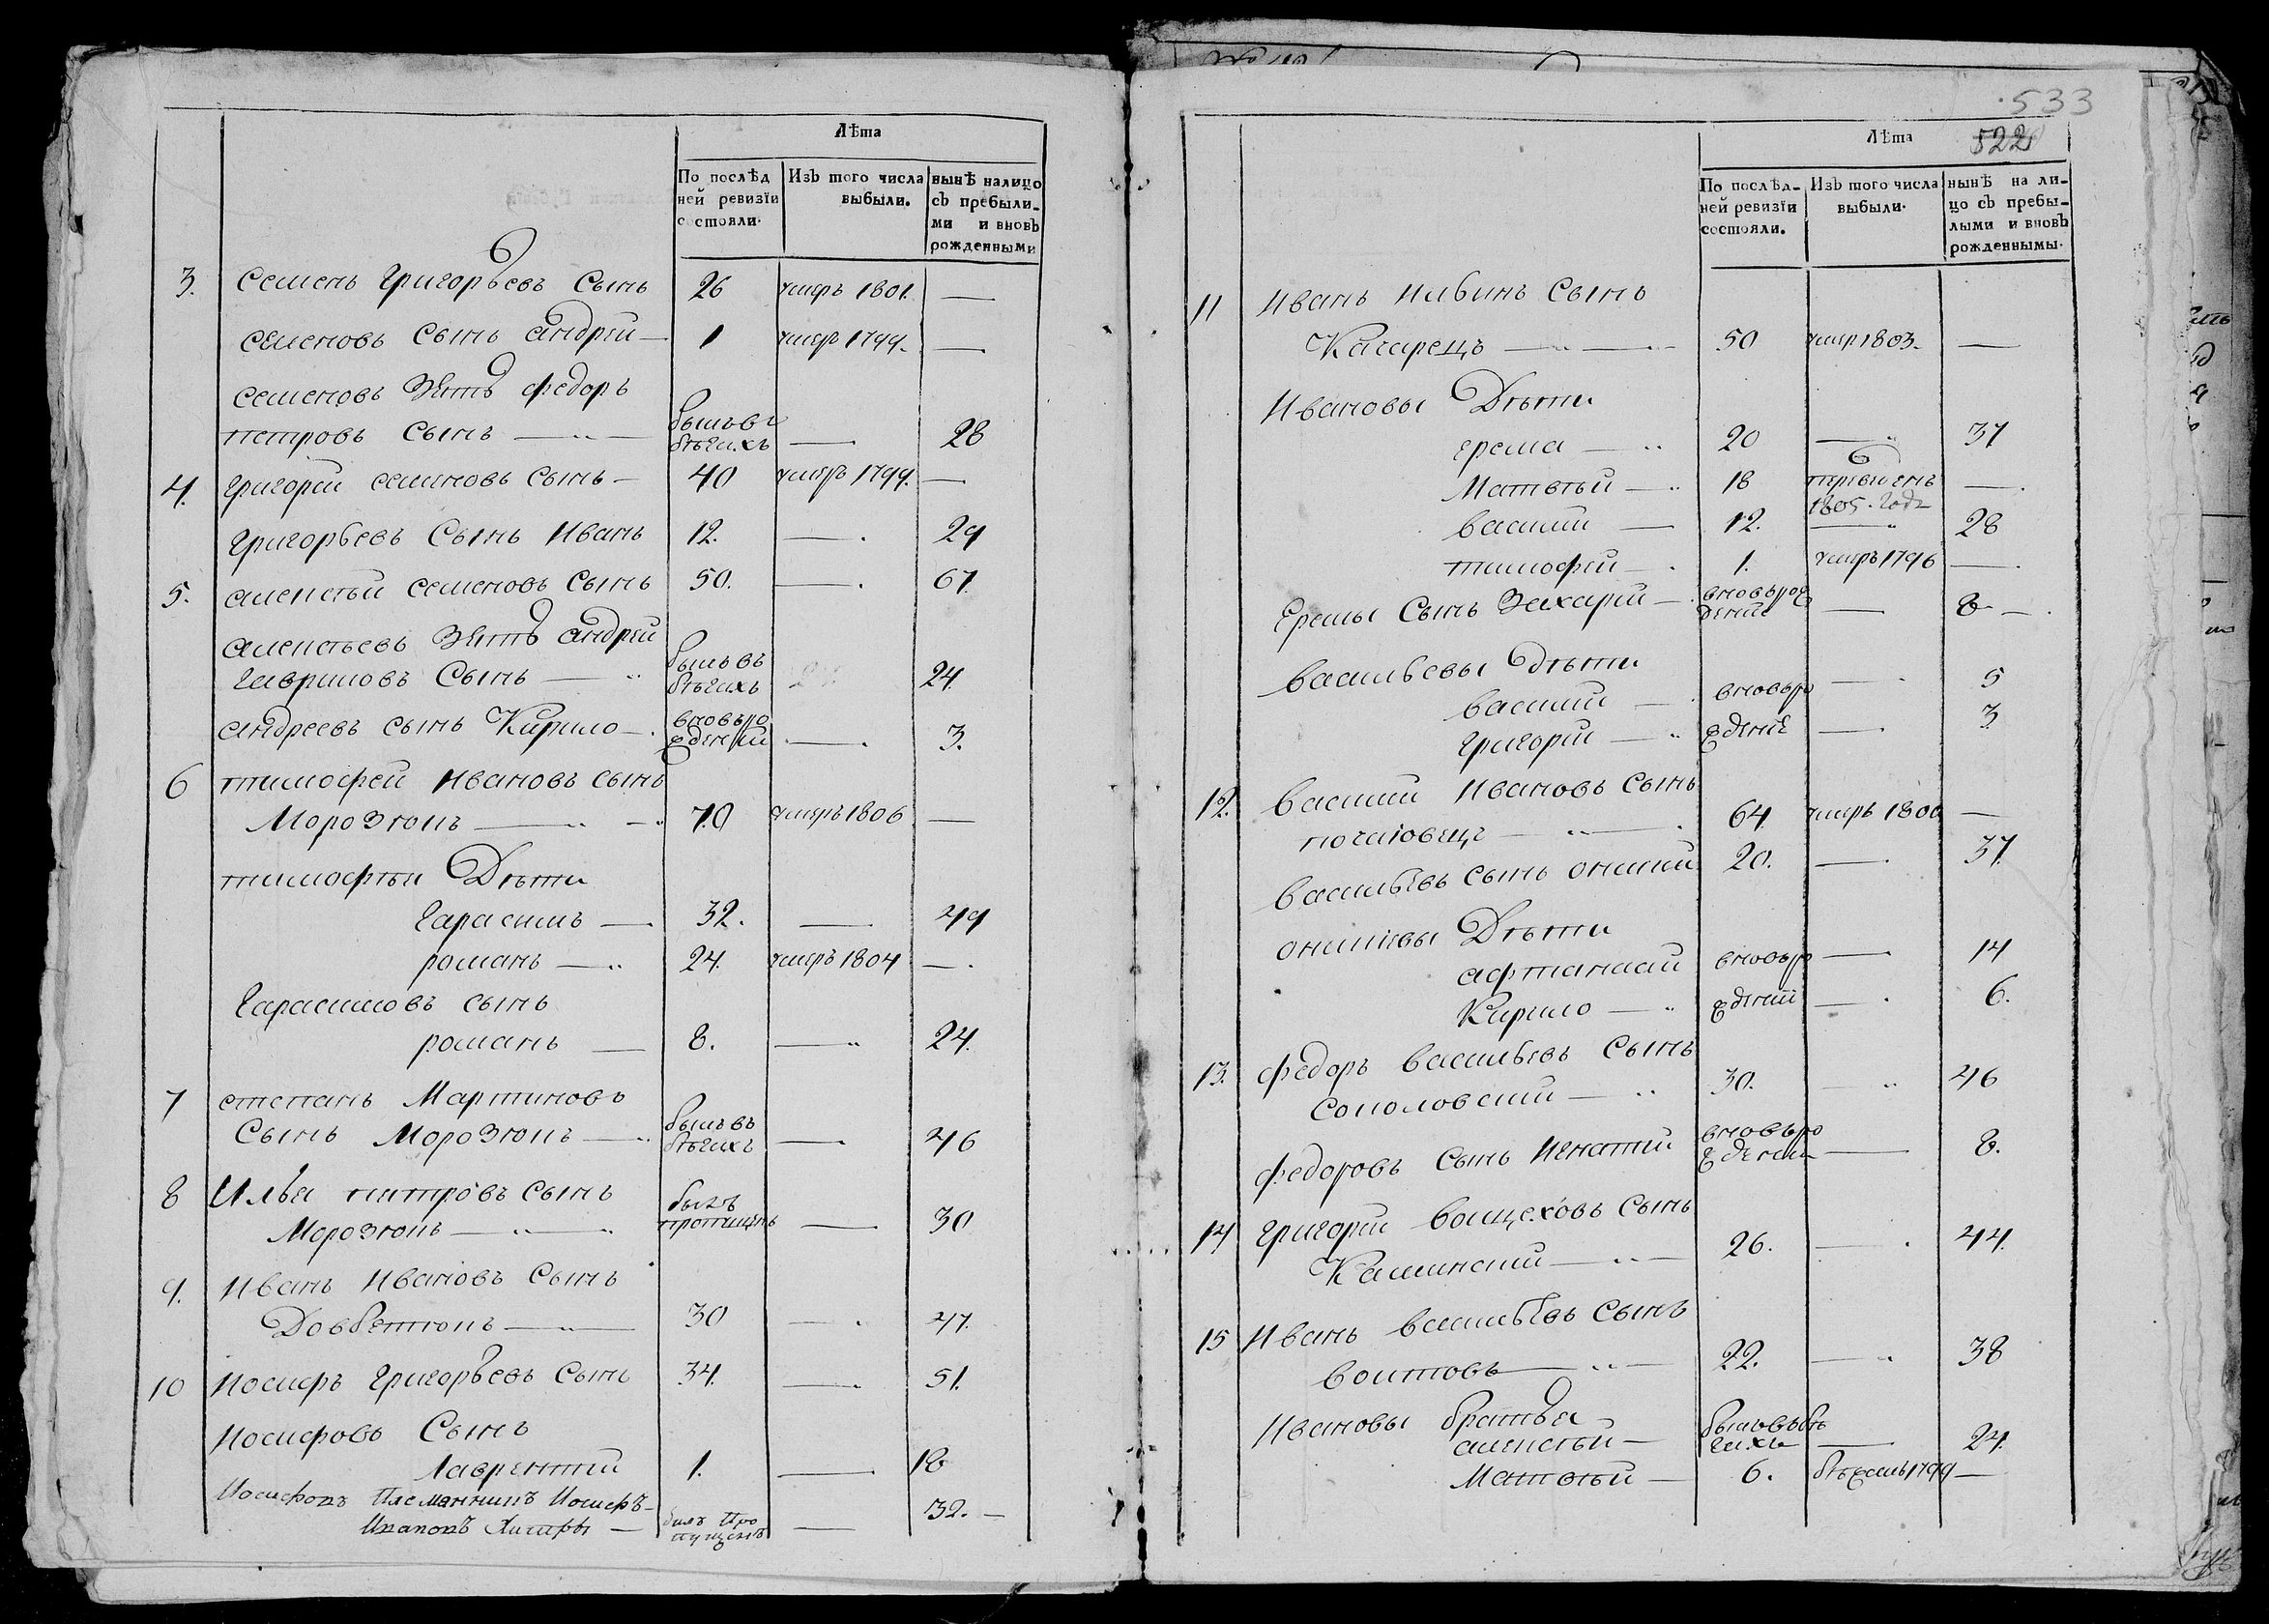 Лѣта
По послѣд Изъ того числа нынѣ налицо
ней ревизїи выбыли. съ прибыли-
состояли. ми и вновь
рожденными
3. Семенъ Григорьевъ Сынъ 26 умеръ 1801. —
Семеновъ Сынъ Андрей — 1 умеръ 1799. —
Семеновъ Зять Федоръ
Петровъ Сынъ — бывъ въ бѣгахъ — 28
4. Григорей Семеновъ Сынъ — 40 умеръ 1799. —
Григорьевъ Сынъ Иванъ 12. — 29
5. Алексѣй Семеновъ Сынъ 50. — 67
Алексѣевъ Зять Андрей
Гавриловъ Сынъ — бывъ въ бѣгахъ 24
Андреевъ сынъ Кирило — вновь рожденный — 3.
6 Тимофей Ивановъ Сынъ
Морозюкъ — 70 умеръ 1806 —
Тимофѣи Дѣти
Гарасимъ — 32. — 49
Романъ — 24. умеръ 1804 —
Гарасимовъ Сынъ
Романъ — 8. — 24.
7 Степанъ Мартиновъ
Сынъ Морозюкъ — бывъ въ бѣгахъ — 46
8 Илья Петровъ Сынъ
Морозюкъ — былъ пропущенъ — 30
9. Иванъ Ивановъ Сынъ
Довбетюкъ — 30 — 47.
10 Иосифъ Григорьевъ Сынъ 34. — 51.
Иосифовъ Сынъ
Лаврентий 1. — 18
Иосифовъ Племянникъ Иосифъ
Ивановъ — былъ пропущенъ — 32. —
533
Лѣта 522
По послѣд- Изъ того числа нынѣ на ли-
ней ревизїи выбыли. цо съ прибы-
состояли. лыми и вновь
рожденными.
11 Иванъ Сынъ
— 50 умер 1803. —
Ивановы Дѣти
Ерема — 20 — 37
Матвѣй — 18 1805. Годѣ —
Василий — 12. — 28
Тимофей — 1. умеръ 1796 —
Еремы Сынъ Захарий — вновьрожденные — 8 —
Васильевы Дѣти
Василий — вновьро — 5
Григорий — жденые — 3
12. Василий Ивановъ Сынъ
— 64 умеръ 1800 —
Васильевъ Сынъ Онисий 20. — 37.
Онисиевы Дѣти
Афтанасий вновьро — 14
Кирило — жденный — 6.
13. Федоръ Васильевъ Сынъ
Соколовский — 30. — 46
Федоровъ Сынъ Игнатий вновьрожденый — 8.
14 Григорий Войцеховъ Сынъ
Каминский — 26. — 44.
15 Иванъ Васильевъ Сынъ
Воитовъ — 22. — 38
Ивановы братья
Алексѣй — бывъ въ бѣгахъ — 24.
Матвѣй — 6. бѣжалъ 1799 —